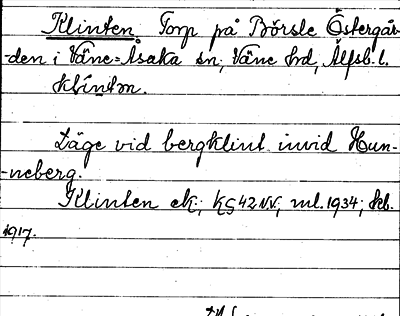 Klinten. Torp på Börsle Östergår-
-den i Väne-Åsaka sn, Väne hd, Älfsb. l.
Läge vid bergklint invid Hun-
-neberg.
Klinten ek, KS 42 NV, ml. 1934; kb.
1917.